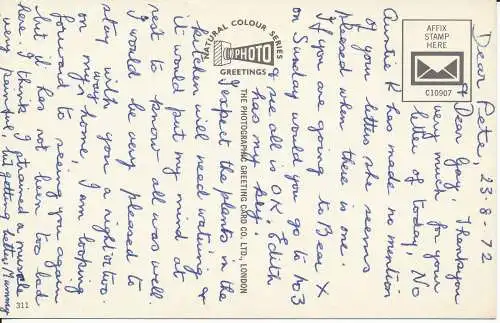 Dear Pete, 23-8-72
& Dear Gay, Thankyou
very much for your
letter of today, No
Auntie K has made no mention
of your letters she seems
pleased when there is one.
If you are going to Bear X
on Sunday would you go to No 3
& see all is OK, Edith
has my key.
I expect the plants in the
kitchen will need watering &
it would put my mind at
rest to know all was well.
I would be very pleased to
stay with you a night or two.
on my way home, I am looping
forward to seeing you again
but it has not been too bad
here. I think I strained a muscle
very painful, but getting better, Mummy
NATURAL COLOUR SERIES
PHOTO
GREETINGS
THE PHOTOGRAPHIC GREETING CARD CO. LTD., LONDON
AFFIX
STAMP
HERE
C10907
311